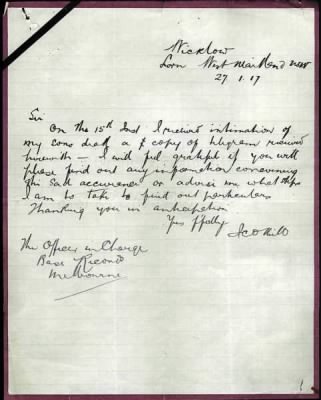 Wicklow
Lorn West Maitland NSW
27.1.17
Sir
On the 15th Inst I received intimation of
my sons death a copy of telegram received
herewith — I will feel grateful if you will
please find out any information concerning
this sad occurance or advise me what steps
I am to take to find out particulars
Thanking you in anticipation
Yrs ffully
Hill
The Officer in Charge
Base Records
Melbourne